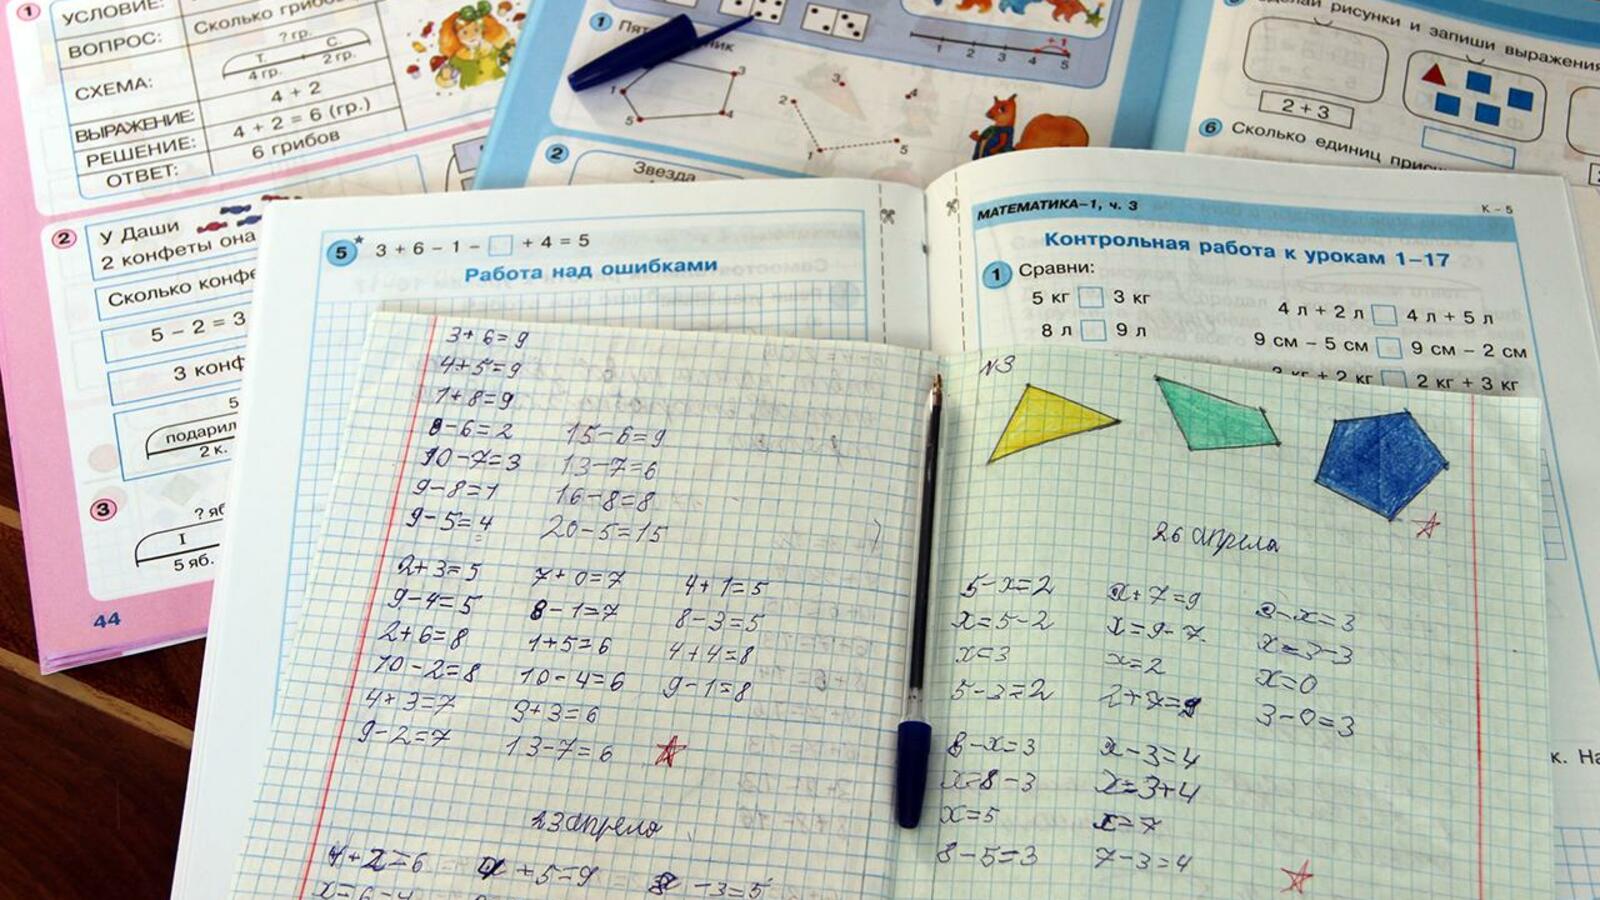 1
УСЛОВИЕ:
ВОПРОС: Сколько грибов
? гр.
Т. С.
СХЕМА: 4 гр. 2 гр.
ВЫРАЖЕНИЕ: 4 + 2
РЕШЕНИЕ: 4 + 2 = 6 (гр.)
ОТВЕТ: 6 грибов
2 У Даши
2 конфеты она
Сколько конфе
5 - 2 = 3
3 конф
5
подарил
2 к.
3 ? яб
I
5 яб.
44
1
1 2 3 4 5
+1
1 3 4 5
2 3 4
1 5
2 Звезда
рисунки и запиши выражения
2 + 3
6 Сколько единиц
5* 3 + 6 - 1 - □ + 4 = 5
Работа над ошибками
МАТЕМАТИКА-1, ч. 3 К - 5
Контрольная работа к урокам 1-17
1 Сравни:
5 кг □ 3 кг 4 л + 2 л □ 4 л + 5 л
8 л □ 9 л 9 см - 5 см □ 9 см - 2 см
3 кг + 2 кг □ 2 кг + 3 кг
к. На
3+6=9
4+5=9
1+8=9
8-6=2 15-6=9
10-7=3 13-7=6
9-8=1 16-8=8
9-5=4 20-5=15
2+3=5 7+0=7 4+1=5
9-4=5 8-1=7 8-3=5
2+6=8 1+5=6 4+4=8
10-2=8 10-4=6 9-1=8
4+3=7 9+3=6
9-2=7 13-7=6
23 апреля
4+x=6 x+5=9 x-3=5
x=6-4
№3
26 апреля
5-x=2 x+7=9 3-x=3
x=5-2 x=9-7 x=3-3
x=3 x=2 x=0
5-3=2 2+7=9 3-0=3
8-x=3 x-3=4
x=8-3 x=3+4
x=5 x=7
8-5=3 7-3=4